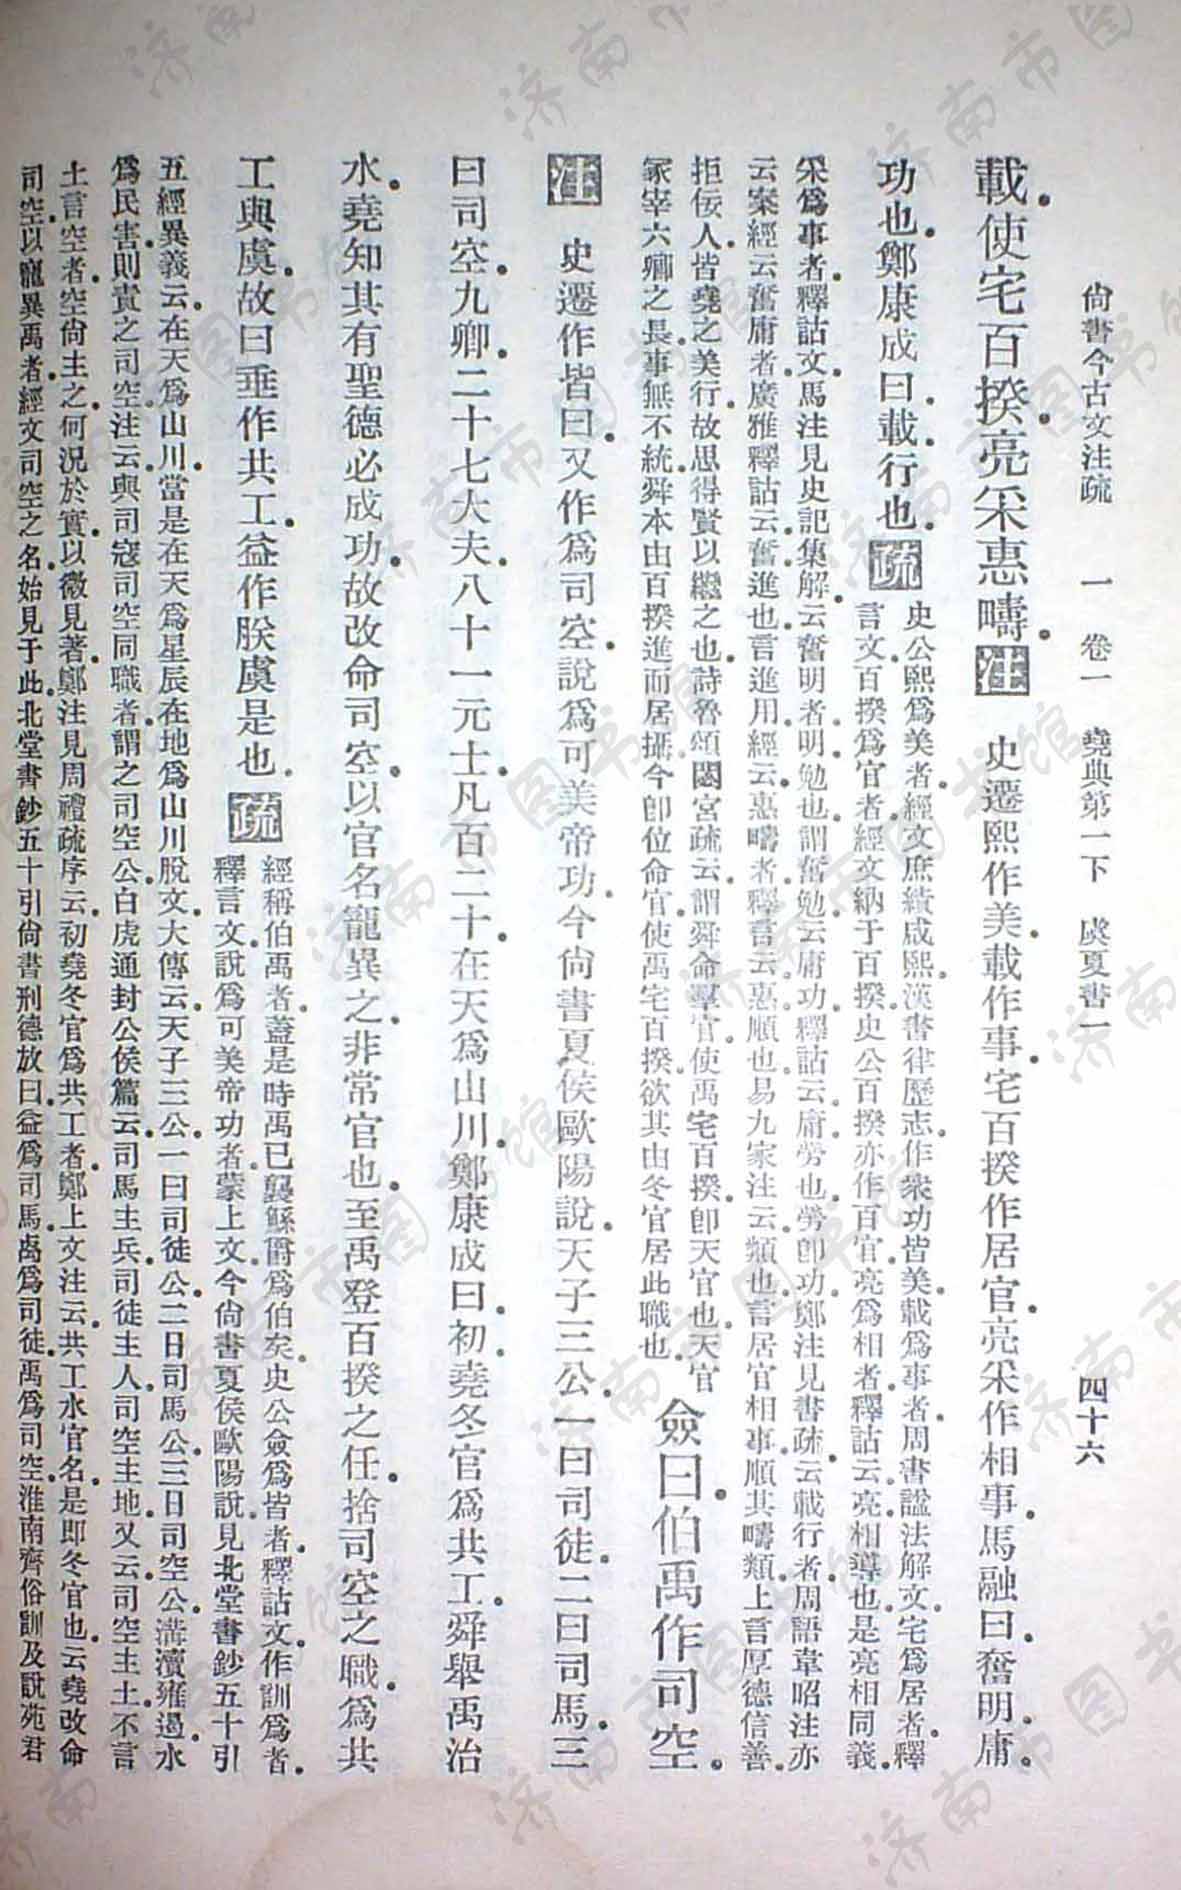 尙書今古文注疏　一　卷一　堯典第一下　虞夏書一　四十六
載使宅百揆亮采惠疇注史遷熙作美載作事宅百揆作居官亮采作相事馬融曰奮明庸
功也鄭康成曰載行也疏
史公熙爲美者經文庶績咸熙漢書律歷志作衆功皆美載爲事者周書謚法解文宅爲居者釋
言文百揆爲官者經文納于百揆史公百揆亦作百官亮爲相者釋詁云亮相導也是亮相同義
采爲事者釋詁文馬注見史記集解云奮明者明勉也謂奮勉云庸功釋詁云庸勞也勞卽功鄭注見書疏云載行者周語韋昭注亦
云案經云奮庸者廣雅釋詁云奮進也言進用經云惠疇者釋言云惠順也易九家注云類也言居官相事順其疇類上言厚德信善
拒佞人皆堯之美行故思得賢以繼之也詩魯頌閟宮疏云謂舜命羣官使禹宅百揆卽天官也天官
冢宰六卿之長事無不統舜本由百揆進而居攝今卽位命官使禹宅百揆欲其由冬官居此職也
僉曰伯禹作司空
注史遷作皆曰又作爲司空說爲可美帝功今尙書夏侯歐陽說天子三公一曰司徒二曰司馬三
曰司空九卿二十七大夫八十一元士凡百二十在天爲山川鄭康成曰初堯冬官爲共工舜舉禹治
水堯知其有聖德必成功故改命司空以官名寵異之非常官也至禹登百揆之任捨司空之職爲共
工與虞故曰垂作共工益作朕虞是也疏
經稱伯禹者蓋是時禹已襲鯀爵爲伯矣史公僉爲皆者釋詁文作訓爲者
釋言文說爲可美帝功者蒙上文今尙書夏侯歐陽說見北堂書鈔五十引
五經異義云在天爲山川當是在天爲星辰在地爲山川脫文大傳云天子三公一曰司徒公二曰司馬公三曰司空公溝瀆雍遏水
爲民害則責之司空注云與司寇司空同職者謂之司空公白虎通封公侯篇云司馬主兵司徒主人司空主地又云司空主土不言
土言空者空尙主之何況於實以微見著鄭注見周禮疏序云初堯冬官爲共工者鄭上文注云共工水官名是卽冬官也云堯改命
司空以寵異禹者經文司空之名始見于此北堂書鈔五十引尙書刑德放曰益爲司馬禼爲司徒禹爲司空淮南齊俗訓及說苑君